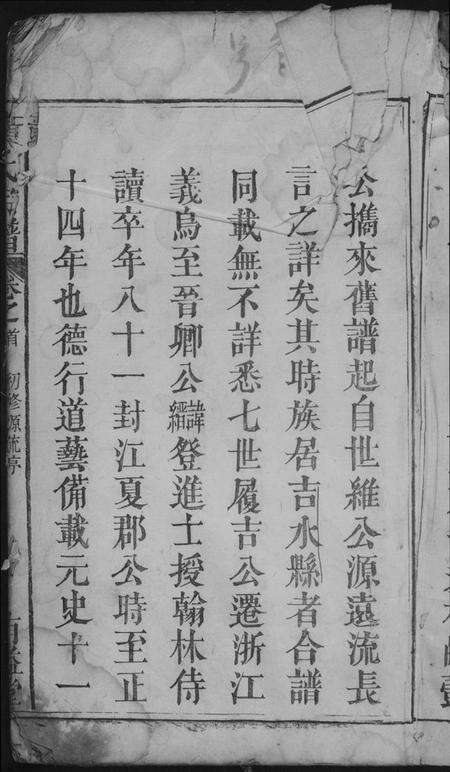 公攜來舊譜起自世維公源遠流長
言之詳矣其時族居吉水縣者合譜
同載無不詳悉七世履吉公遷浙江
義烏至晉卿公諱縉登進士授翰林侍
讀卒年八十一封江夏郡公時至正
十四年也德行道藝備載元史十一
卷之首 初修源流序